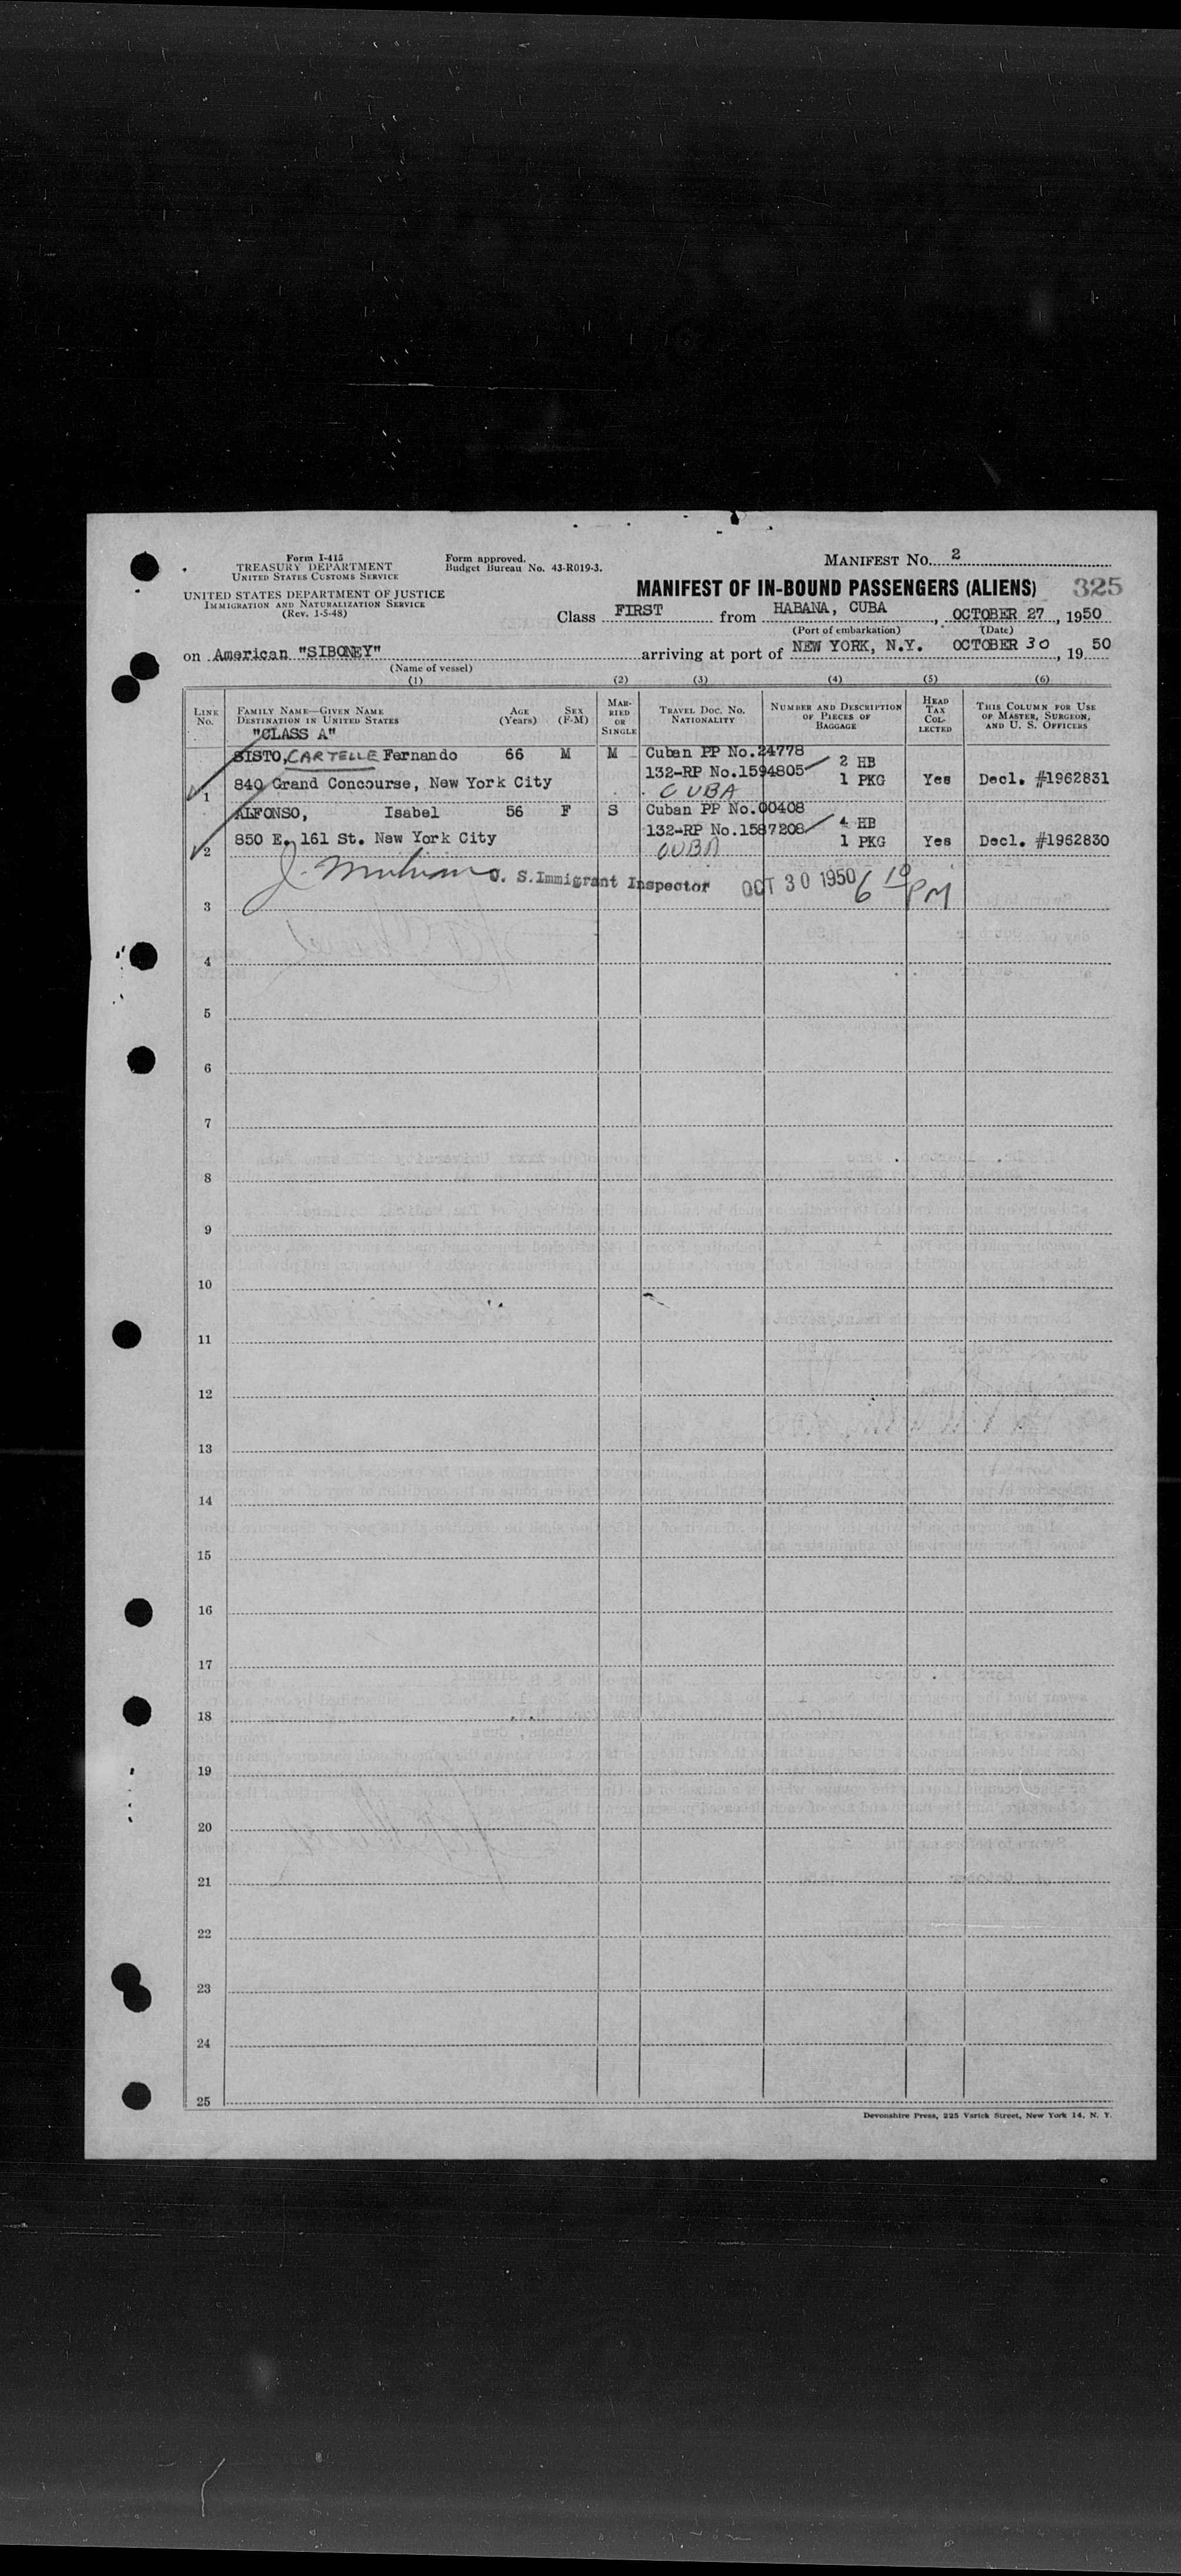 Form I-415
TREASURY DEPARTMENT
UNITED STATES CUSTOMS SERVICE
Form approved.
Budget Bureau No. 43-R019-3.
MANIFEST No. 2
UNITED STATES DEPARTMENT OF JUSTICE
IMMIGRATION AND NATURALIZATION SERVICE
(Rev. 1-5-48)
MANIFEST OF IN-BOUND PASSENGERS (ALIENS) 325
Class FIRST from HABANA, CUBA, OCTOBER 27, 1950
(Port of embarkation) (Date)
on American "SIBONEY" arriving at port of NEW YORK, N.Y. OCTOBER 30, 1950
(Name of vessel)
(1) (2) (3) (4) (5) (6)
LINE No. FAMILY NAME—GIVEN NAME DESTINATION IN UNITED STATES AGE (Years) SEX (F-M) MARRIED OR SINGLE TRAVEL DOC. NO. NATIONALITY NUMBER AND DESCRIPTION OF PIECES OF BAGGAGE HEAD TAX COLLECTED THIS COLUMN FOR USE OF MASTER, SURGEON, AND U. S. OFFICERS
"CLASS A"
SISTO, CARTELLE Fernando 66 M M Cuban PP No.24778
132-RP No.1594805 2 HB
1 840 Grand Concourse, New York City CUBA 1 PKG Yes Decl. #1962831
ALFONSO, Isabel 56 F S Cuban PP No.00408
132-RP No.1587208 4 HB
2 850 E. 161 St. New York City CUBA 1 PKG Yes Decl. #1962830
U. S. Immigrant Inspector OCT 30 1950 6 10 PM
3
4
5
6
7
8
9
10
11
12
13
14
15
16
17
18
19
20
21
22
23
24
25
Devonshire Press, 225 Varick Street, New York 14, N. Y.